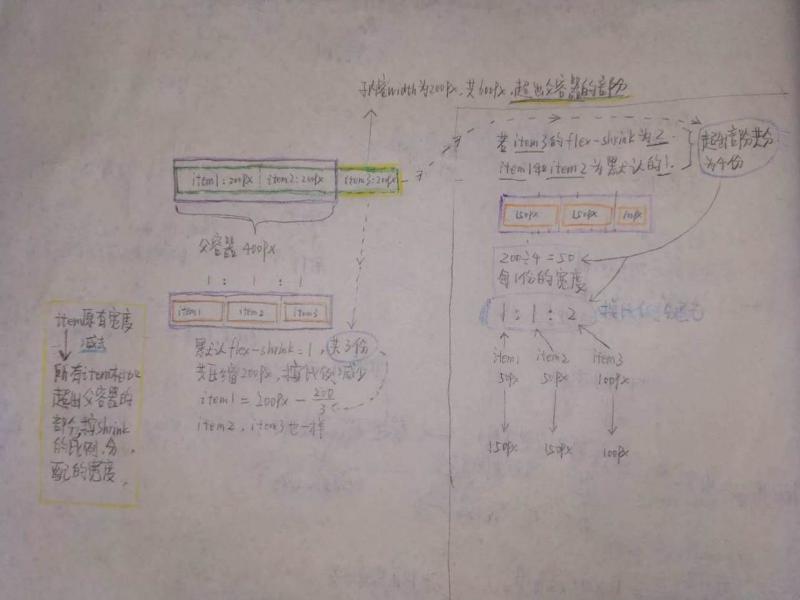 子内容width为200px,共600px,超出父容器的部分
item1:200px item2:200px item3:200px
父容器 400px
1 : 1 : 1
item1 item2 item3
默认flex-shrink=1,共3份
共压缩200px,按比例减少
item1 = 200px - 200/3
item2、item3也一样
item原有宽度
减去
所有item相比
超出父容器的
部分,按shrink
的比例,分
配的宽度
若item3的flex-shrink为2
item1和item2为默认的1.
超出部分共分
为4份
150px 150px 100px
200÷4=50
每1份的宽度
1 : 1 : 2
item1 item2 item3
50px 50px 100px
150px 150px 100px